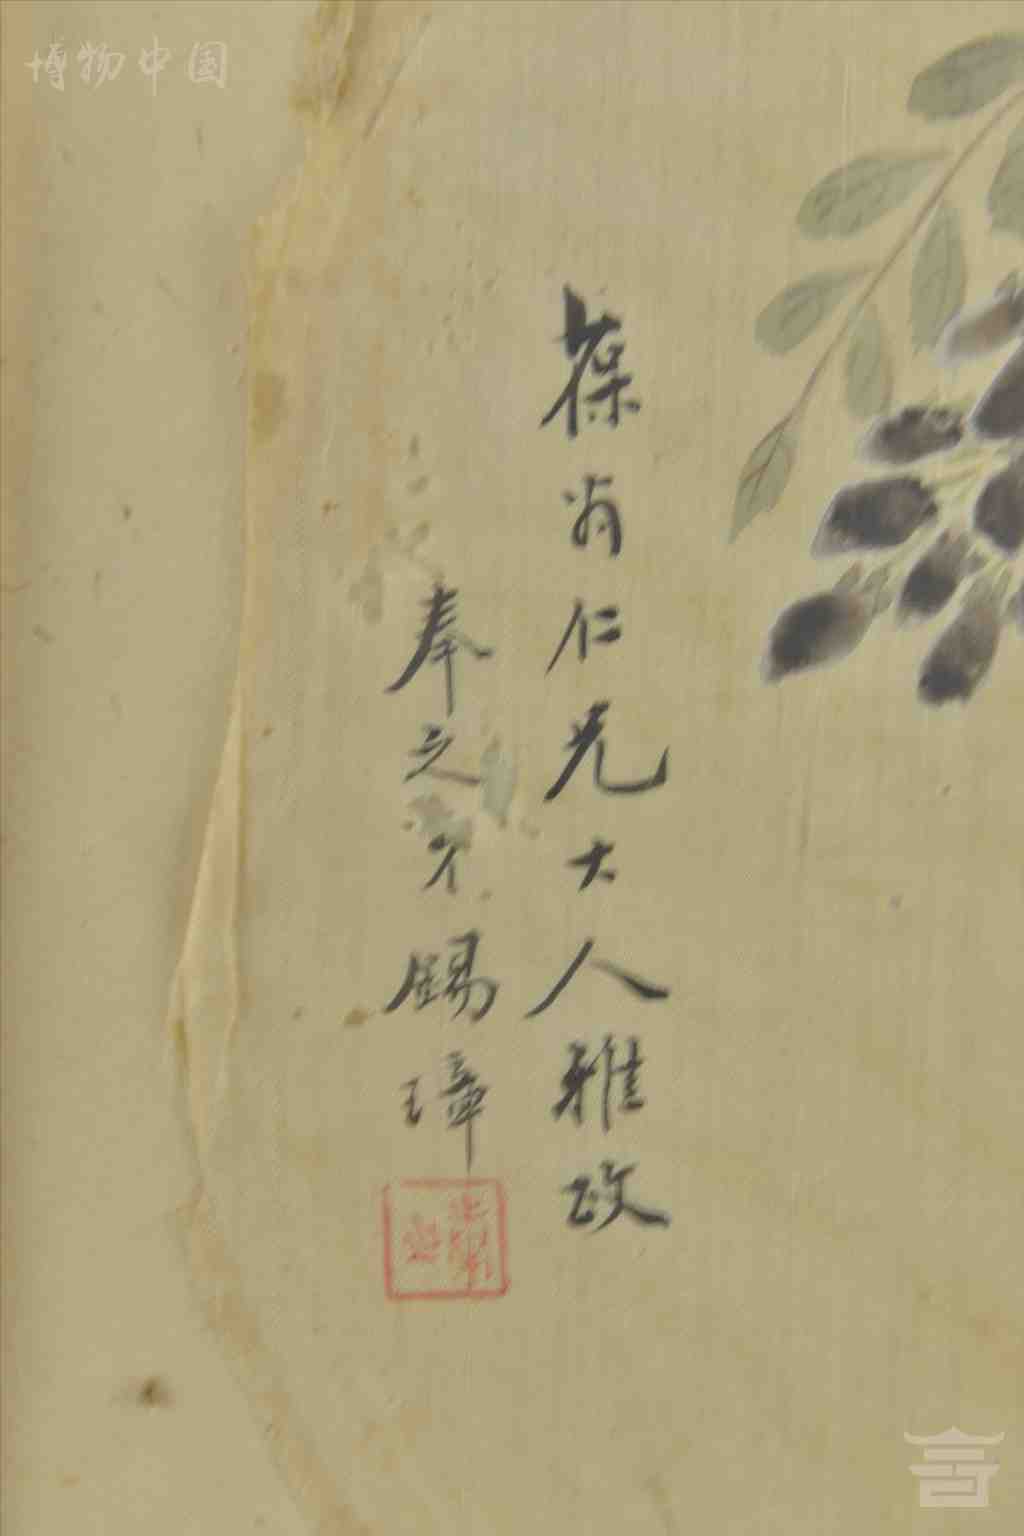 博物中国
葆肖仁兄大人雅政
奉之弟錫璋